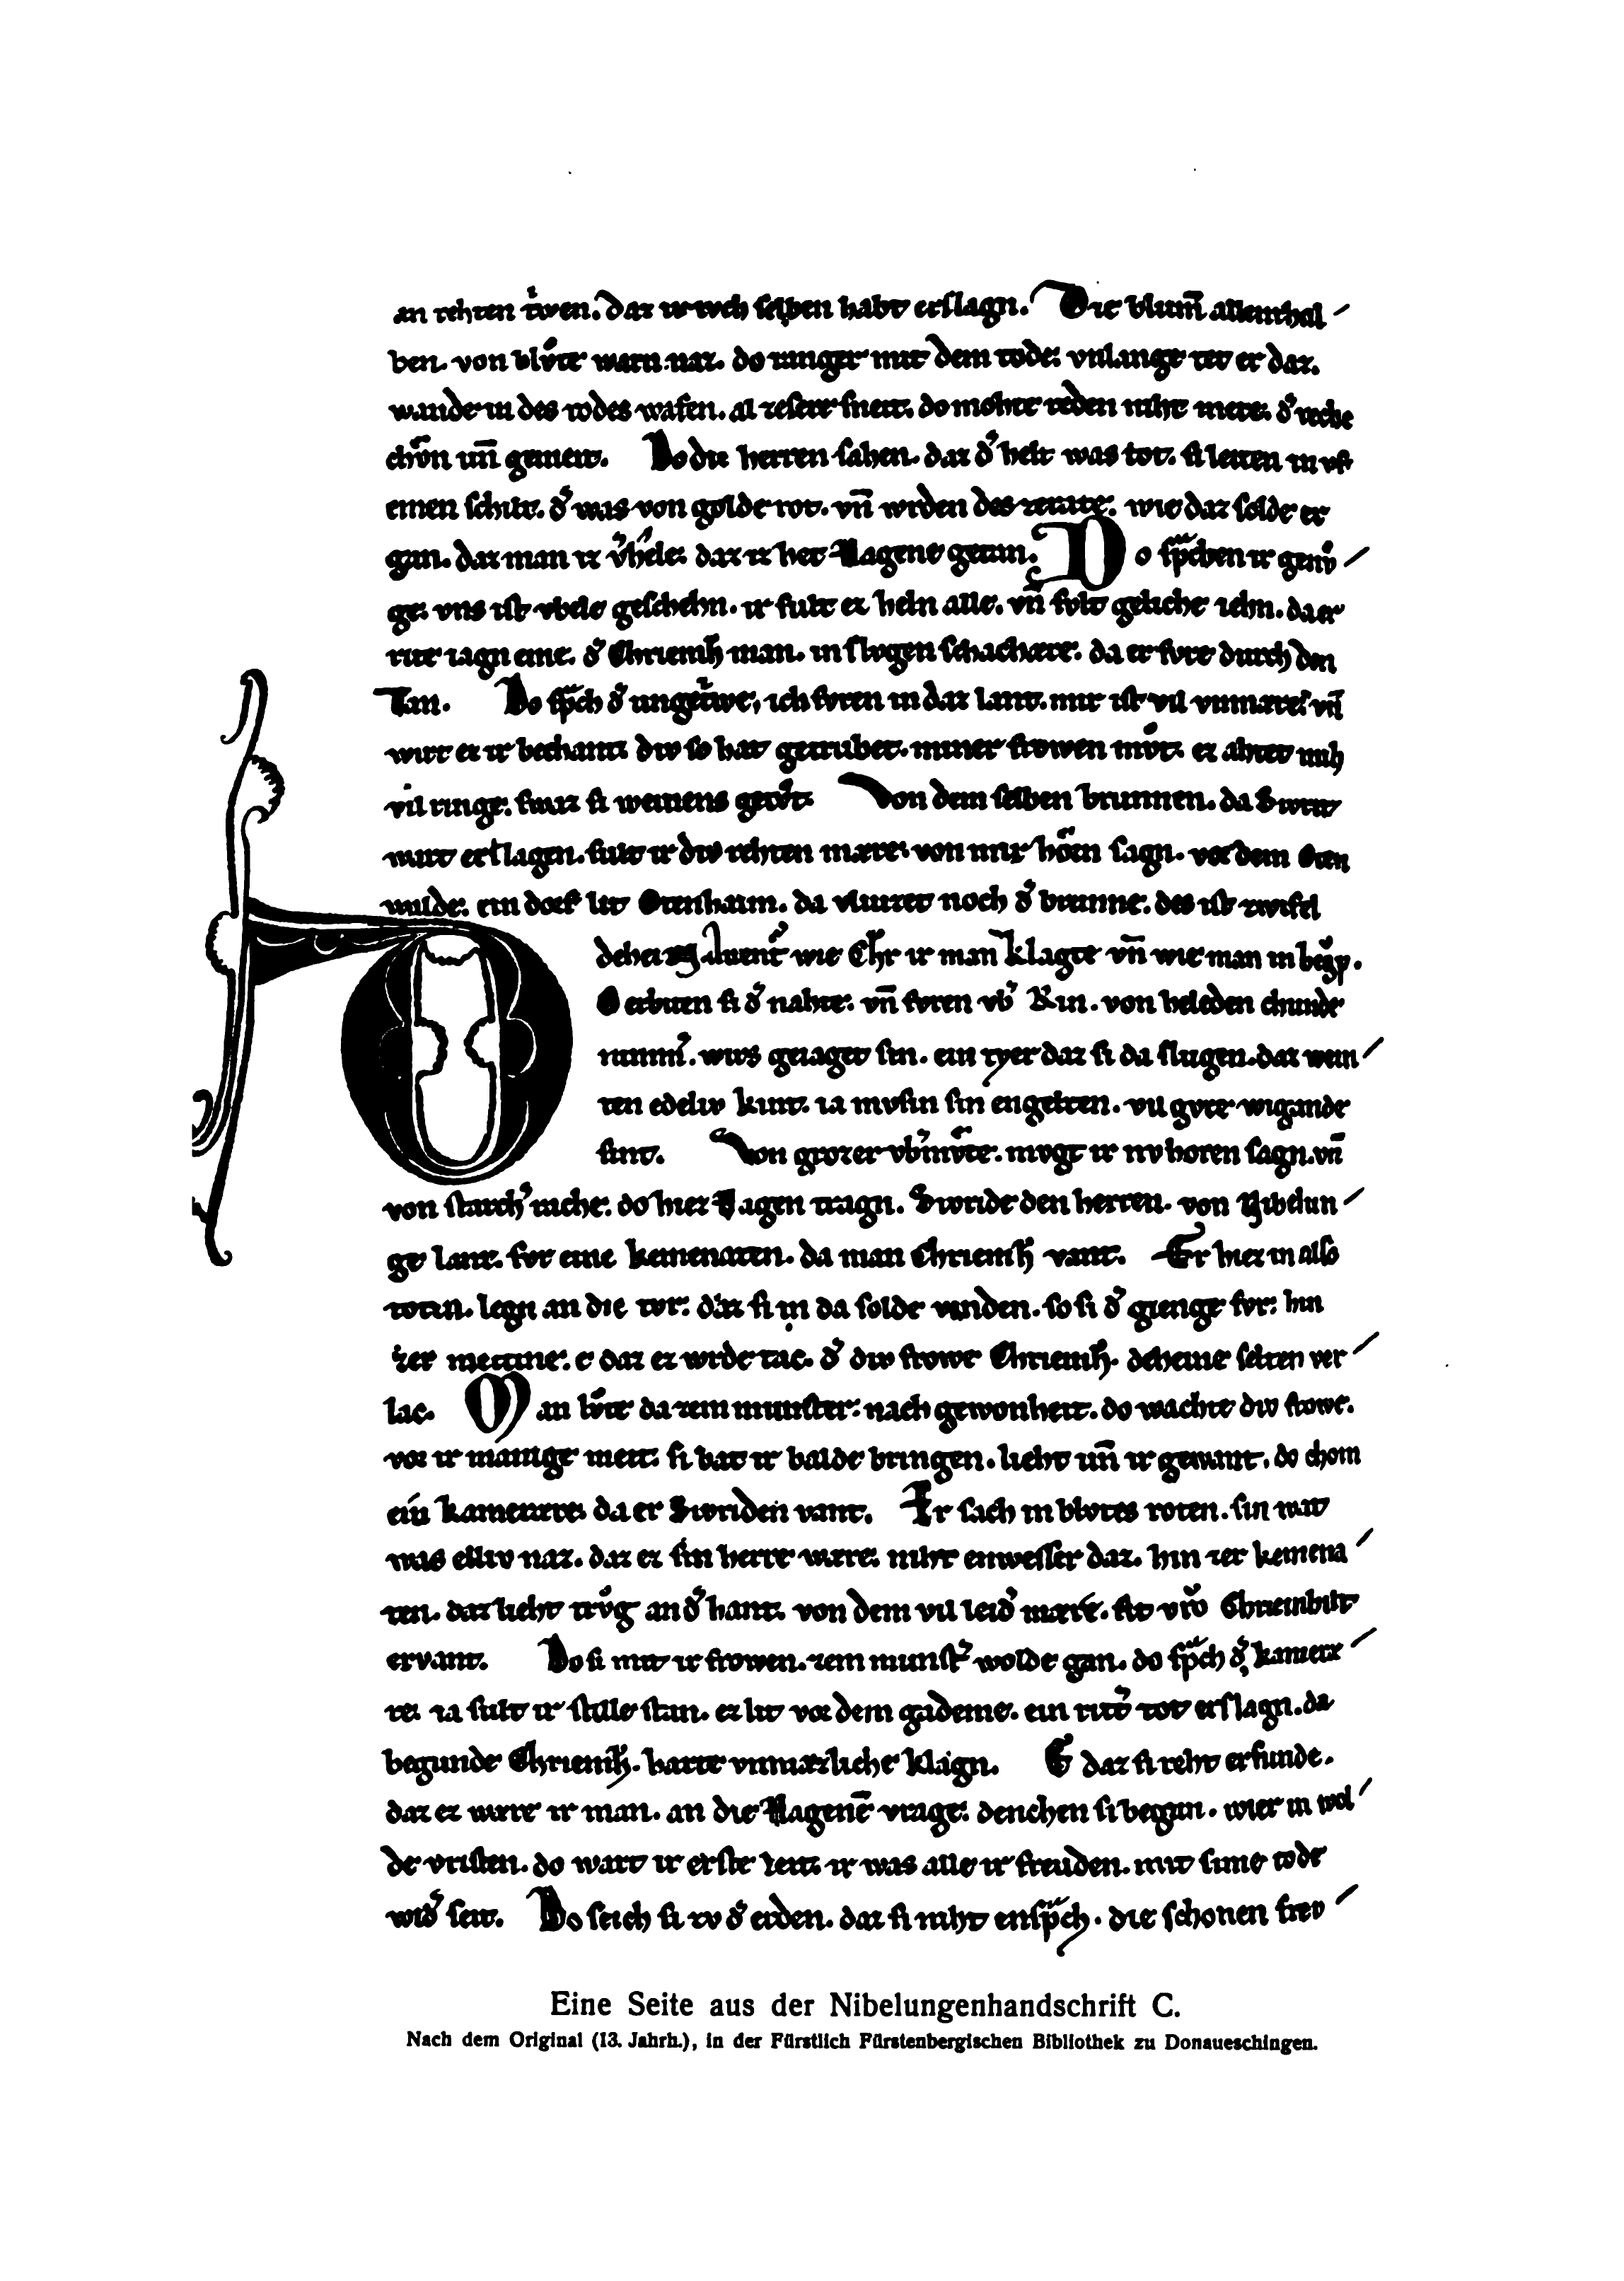 an rehten trͥwen. daz ir ivch selben habt erslagn. Die blum̄ allenthal
ben. von blv̊te warn naz. do ranger mit dem tode. vnlange tet er daz.
wande in des todes wafen. al ze sere sneit. do mohte reden niht mere. d͛ reche
chv̊n un̄ gemeit. Do die herren sahen. daz d͛ helt was tot. si leiten in vf
einen schilt. d͛ was von golde rot. vn̄ wrden des ze rate. wie daz solde er
gan. daz man iz v͛hele. daz iz het Hagene getan. Do sp͛chen ir genv̊
ge. vns ist vbele geschehn. ir sult ez heln alle. vn̄ svlt geliche iehn. da er
rite iagn eine. d͛ Chriemh̄ man. in slvgen schachære. da er fvre durch den
Tan. Do sp͛ch d͛ ungetͥwe. ich fvren in daz lant. mir ist vil vnmære. vn̄
wirt ez ir bechant. div so hat getrubet. miner frowen mv̊t. ez ahtet mih
vil ringe. swaz si weinens getv̊t. Von dem selben brunnen. da Sivrit
wart erslagen. sult ir div rehten mære. von mir hören sagn. vor dem Oten
walde. ein dorf lit Otenhaim. da vliuzet noch d͛ brunne. des ist zwifel
dehein. Auent͛ wie Chr ir man klagte vn̄ wie man in begrv̊p.
Do erbiten si d͛ nahte. vn̄ fvren vb͛ Rin. von heleden chunde
nimm͛. wirs geiaget sin. ein tyer daz si da slugen. daz wein
ten edeliv kint. ia mvsin sin engelten. vil gvte wigande
sint. Von grozer vb͛mv̊te. mvgt ir nv horen sagn. vn̄
von starch͛ rache. do hiez Hagen tragn. Sivride den herren. von Nibelun
ge lant. fvr eine kemenaten. da man Chriemh̄ vant. Er hiez in also
toten. legn an die tvr. daz si in da solde vinden. so si d͛ gienge fvr. hin
zer mettine. e daz ez wrde tac. d͛ div frowe Chriemh̄. deheine selten ver
lac. Man lv̊te da zem munster. nach gewonheit. do wachte div frowe.
vor ir manige meit. si bat ir balde bringen. lieht un̄ ir gewant. do chom
ein kamerære. da er Sivriden vant. Er sach in blvtes roten. sin wat
was elliv naz. daz ez sin herre wære. niht enwesser daz. hin zer kemena
ten. daz lieht trv̊g an d͛ hant. von dem vil leid͛ mære. sit vrͦv Chriemhilt
ervant. Do si mit ir frowen. zem munst͛ wolde gan. do sp͛ch d͛ kameræ
re. ia sult ir stille stan. ez lit vor dem gademe. ein rit͛ tot erslagn. da
begunde Chriemh̄. harte vnmæzliche klagn. E daz si reht erfunde.
daz ez wære ir man. an die Hagenē vrage. denchen si began. wier in wol
de vristen. do wart ir erste leit. ir was alle ir freuden. mit sime tode
wid͛ seit. Do seich si zv d͛ erden. daz si niht ensp͛ch. die schonen frev
Eine Seite aus der Nibelungenhandschrift C.
Nach dem Original (13. Jahrh.), in der Fürstlich Fürstenbergischen Bibliothek zu Donaueschingen.